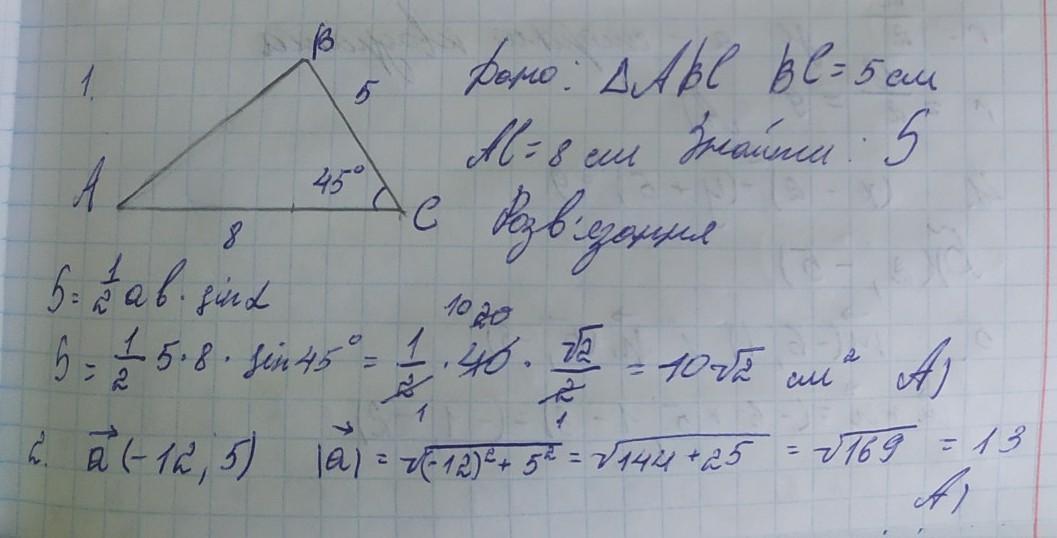 1. B 5 Дано: △ABC BC = 5 см
A 45° C 8 AC = 8 см Знайти: S
Розв'язання
S = 1/2 ab · sin α
S = 1/2 5 · 8 · sin 45° = 1/2 · 40 · √2/2 = 10√2 см² А)
10 20
1 1
2. a⃗ (-12; 5) |a⃗| = √(-12)² + 5² = √144 + 25 = √169 = 13
А)